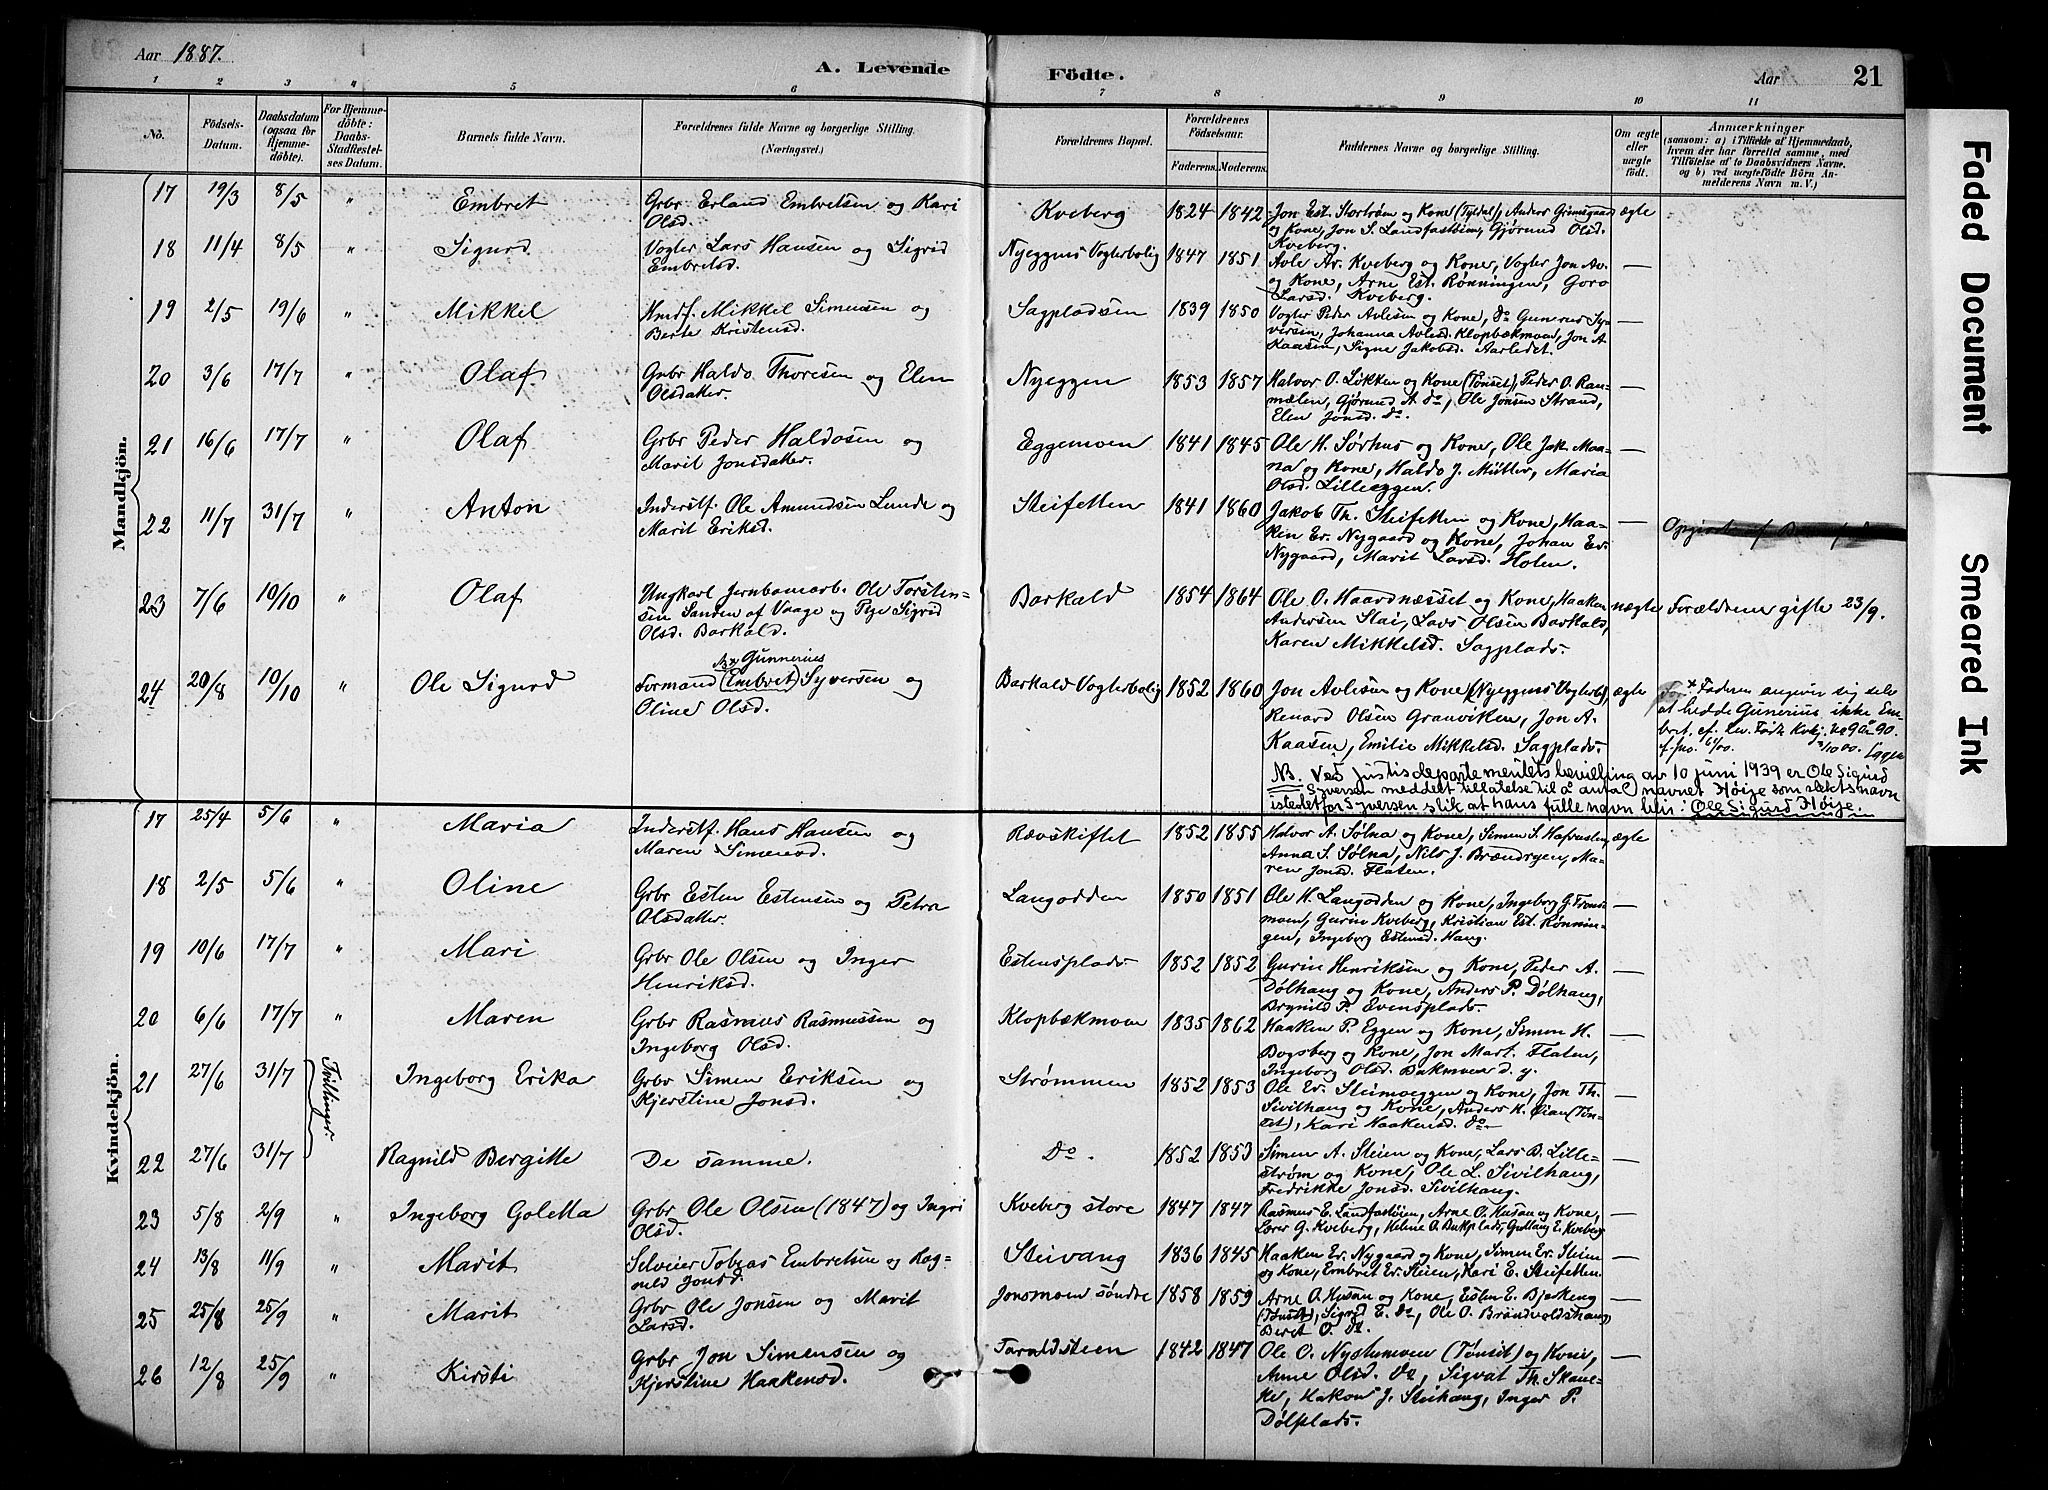 Aar 1887.
A. Levende Födte.
Aar
21
1 2 3 4 5 6 7 8 9 10 11
No.
Födsels-
Datum.
Daabsdatum
(ogsaa for
Hjemme-
döbte).
For Hjemme-
döbte:
Daabs-
Stadfæstel-
ses Datum.
Barnets fulde Navn.
Forældrenes fulde Navne og borgerlige Stilling.
(Næringsvei.)
Forældrenes Bopæl.
Forældrenes
Födselsaar.
Faderens. Moderens.
Faddernes Navne og borgerlige Stilling.
Om ægte
eller
uægte
födt.
Anmærkninger
(saasom: a) i Tilfælde af Hjemmedaab,
hvem der har forrettet samme, med
Tilföielse af to Daabsvidners Navne.
og b) ved uægtefödte Börn An-
melderens Navn m. V.)
Mandkjön.
17 19/3 8/5 " Embret Grbr Erland Embretsen og Kari Kveberg 1824 1842 Jon Est. Stortrøm og Kone (Tyldal), Anders Grimsgaard ægte
Olsd. og Kone, Jon S. Landfastøien, Gjørund Olsd.
Kveberg.
18 11/4 8/5 " Sigurd Vogter Lars Hansen og Sigrid Nyeggens Vogterbolig 1847 1851 Avle Ar. Kveberg og Kone, Vogter Jon Av. —
Embretsd. og Kone, Arne Est. Rønningen, Goro
Larsd. Kveberg.
19 2/5 19/6 " Mikkel Hmdf. Mikkel Simensen og Sagpladsen 1839 1850 Vogter Peder Avlesen og Kone, do Gunerus Sy- —
Berte Kristensd. versen, Johanna Avlesd. Klopbækmoen, Jon A.
Kaasen, Signe Jakobsd. Aarledet.
20 3/6 17/7 " Olaf Grbr Haldo Thoresen og Elen Nyeggen 1853 1857 Halvor O. Løkken og Kone (Tønset), Peder O. Ran- —
Olsdatter. mælen, Gjørund A. do, Ole Jonsen Strand,
Elen Jonsd. do.
21 16/6 17/7 " Olaf Grbr Peder Haldosen og Eggemoen 1841 1845 Ole H. Sørhus og Kone, Ole Jak. Moa- —
Marit Jonsdatter. na og Kone, Haldo J. Müller, Maria
Olsd. Lilleeggen.
22 11/7 31/7 " Anton Inderstf. Ole Amundsen Lunde og Steifetten 1841 1860 Jakob Th. Steifetten og Kone, Haa- —
Marit Eriksd. ken Er. Nygaard og Kone, Johan Er.
Nygaard, Marit Larsd. Holen.
23 7/6 10/10 " Olaf Ungkarl Jernbanearb. Ole Torsten- Barkald 1854 1864 Ole O. Haardnæsset og Kone, Haaken uægte Forældrene gifte 23/9.
sen Sanden af Vaage og Pige Sigrid Andersen Stai, Lars Olsen Barkald,
Olsd. Barkald. Karen Mikkelsd. Sagplads.
Nx Gunnerius
24 20/8 10/10 " Ole Sigurd Formand (Embret) Syversen og Barkald Vogterbolig 1852 1860 Jon Avlesen og Kone (Nyeggens Vogterb), ægte x Faderen angiver sig selv
Oline Olsd. Renard Olsen Granviken, Jon A. at hedde Gunerius ikke Em-
Kaasen, Emilie Mikkelsd. Sagplads. bret. cf. Lev. Fødte Kvkj. No 9 Aar 90.
NB. Ved Justisdepartementets bevilling av 10 juni 1939 er Ole Sigurd
Syversen meddelt tillatelse til å anta navnet Høije som slektsnavn
istedetfor Syversen slik at hans fulle navn blir: Ole Sigurd Høije.
Kvindekjön.
17 25/4 5/6 " Maria Inderstf. Hans Hansen og Rævskiftet 1852 1855 Halvor A. Sølna og Kone, Simen S. Hafrusten, ægte
Maren Simensd. Anna S. Sølna, Nils J. Brændryen, Ma-
ren Jonsd. Flaten.
18 2/5 5/6 " Oline Grbr Esten Estensen og Petra Langodden 1850 1851 Ole H. Langodden og Kone, Ingeborg G. Trons- —
Olsdatter. moen, Gurin Kveberg, Kristian Est. Rønnin-
gen, Ingeborg Estensd. Haug.
19 10/6 17/7 " Mari Grbr Ole Olsen og Inger Estensplads 1852 1852 Gurin Henriksen og Kone, Peder A. —
Henriksd. Dølhaug og Kone, Anders P. Dølhaug,
Brynild P. Evensplads.
20 6/6 17/7 " Maren Grbr Rasmus Rasmussen og Klopbækmoen 1835 1862 Haaken P. Eggen og Kone, Simen H. —
Ingeborg Olsd. Bogsberg og Kone, Jon Mart. Flaten,
Ingeborg Olsd. Bakmoen d. y.
Tvillinger.
21 27/6 31/7 Ingeborg Erika Grbr Simen Eriksen og Strømmen 1852 1853 Ole Er. Steimoeggen og Kone, Jon Th. —
Kjerstine Jonsd. Sivilhaug og Kone, Anders K. Øian (Tøn-
set), Kari Haakensd. do
22 27/6 31/7 Ragnild Bergitte De samme. Do. 1852 1853 Simen A. Steien og Kone, Lars B. Lille- —
strøm og Kone, Ole L. Sivilhaug,
Fredrikke Jonsd. Sivilhaug.
23 5/8 2/9 " Ingeborg Goletta Grbr Ole Olsen (1847) og Ingri Kveberg store 1847 1847 Rasmus E. Landfastøien, Arne O. Husan og Kone, —
Olsd. Lærer G. Kveberg, Helene O. Bakplads, Gullaug E. Kveberg
24 13/8 11/9 " Marit Selveier Tobias Embretsen og Rag- Steivang 1836 1845 Haaken Er. Nygaard og Kone, Simen Er. Steien —
nild Jonsd. og Kone, Embret Er. Steien, Kari E. Steifetten.
25 25/8 25/9 " Marit Grbr Ole Jonsen og Marit Jonsmoen søndre 1858 1859 Arne O. Husan og Kone, Esten E. Bjøkeng —
Larsd. (Tønset), Sigrid E. do, Ole O. Brandvoldshaug,
Beret O. do.
26 12/8 25/9 " Kirsti Grbr Jon Simensen og Taraldsteen 1842 1847 Ole O. Nystumoen (Tønset) og Kone, —
Kjerstine Haakensd. Anne Olsd. do, Sigvat Th. Skanc-
ke, Hakon J. Steihaug, Inger P.
Dølplads.
Faded Document
Smeared Ink